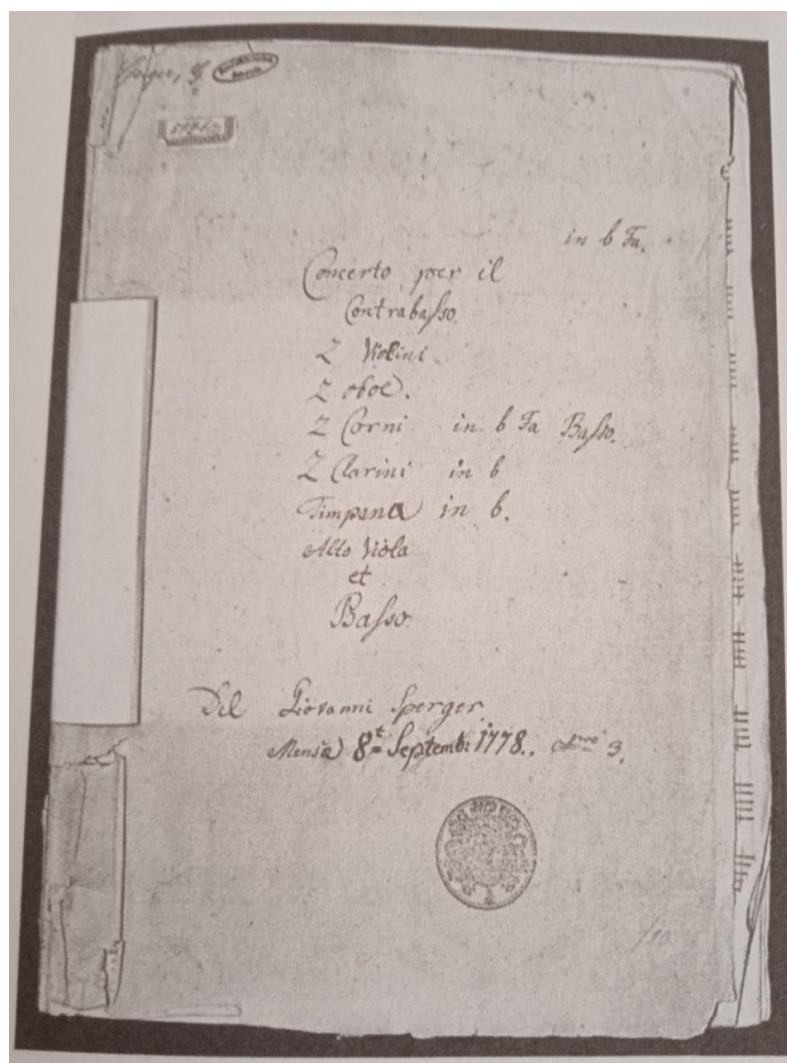 Sperger, J.
in b Fa.
Concerto per il
Contrabasso.
2 Violini
2 oboe.
2 Corni in b Fa Basso.
2 Clarini in b
Timpana in b.
Alto Viola
et
Basso.
Del Giovanni Sperger.
Mensa 8t Septemb: 1778. 3.